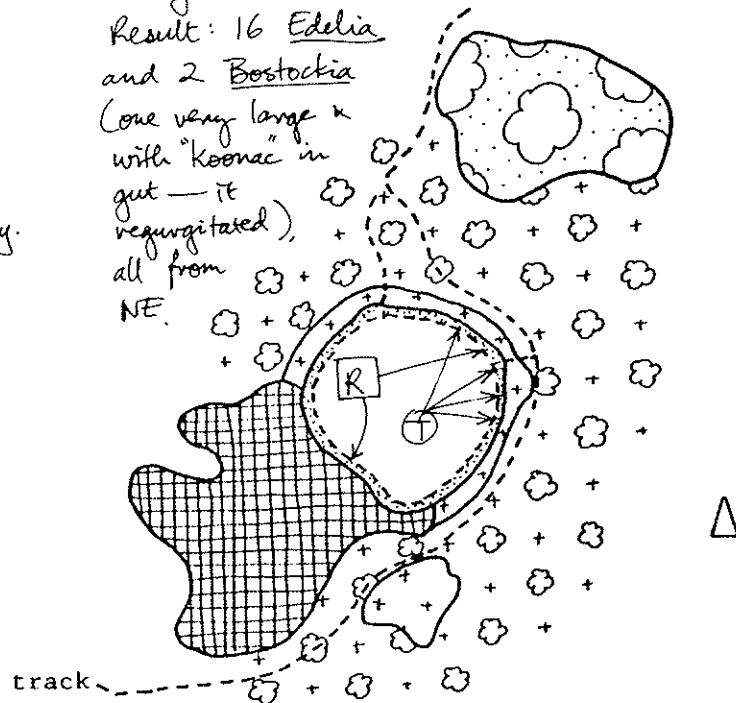 Result: 16 Edelia
and 2 Bostockia
(one very large &
with "koonac" in
gut — it
regurgitated),
all from
NE.
y.
R
T
track